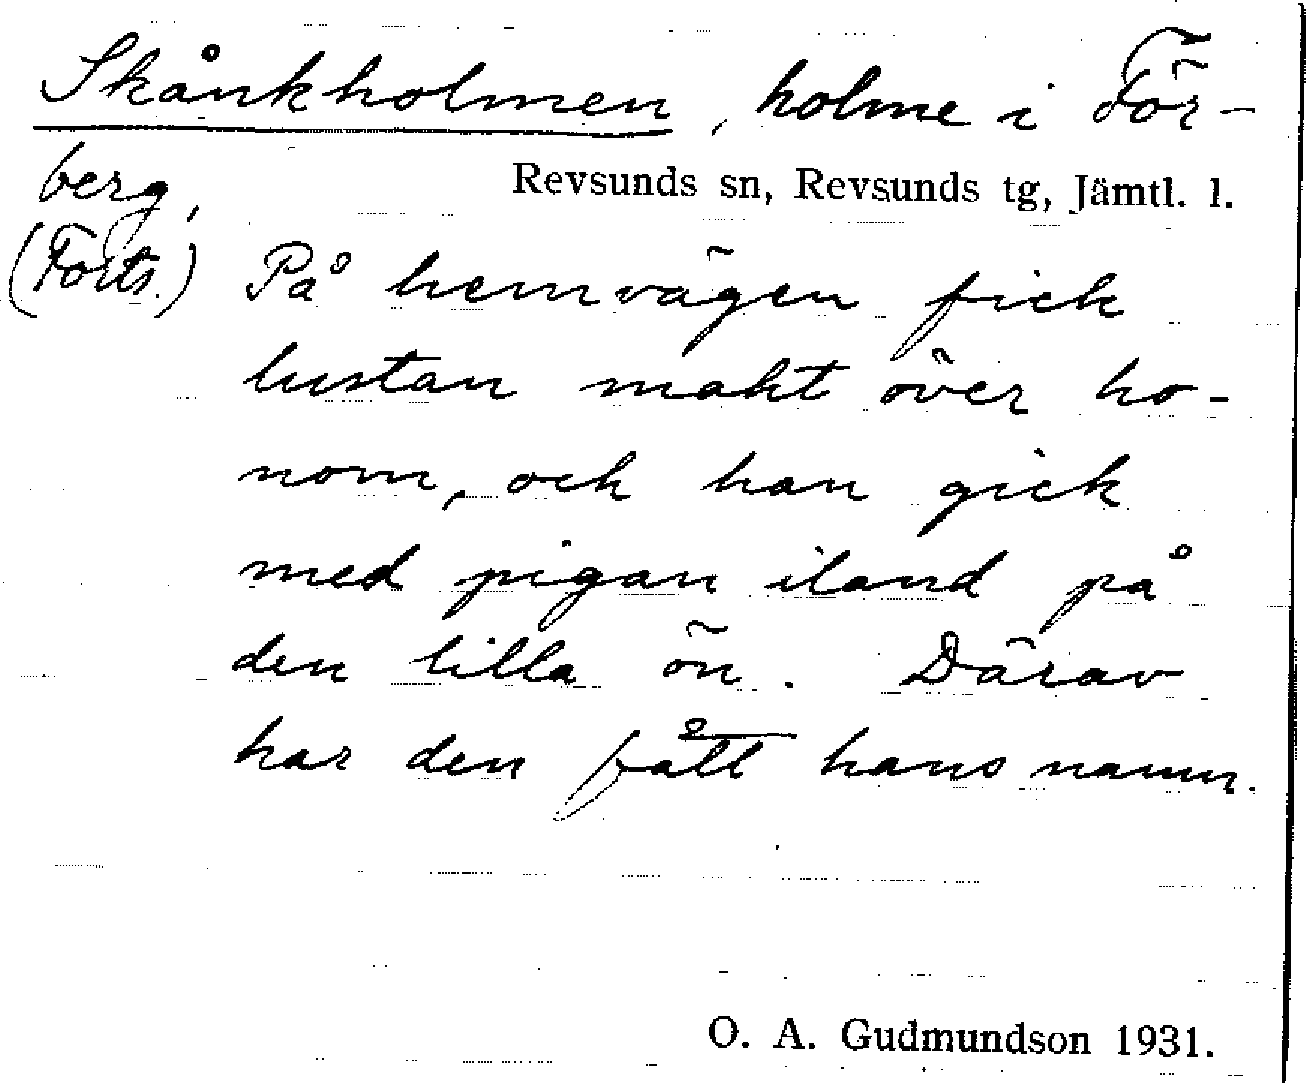 Skånkholmen, holme i För-
berg,
Revsunds sn, Revsunds tg, Jämtl. l.
(Forts.) På hemvägen fick
lustan makt över ho-
nom, och han gick
med pigan iland på
den lilla ön. Därav
har den fått hans namn.
O. A. Gudmundson 1931.